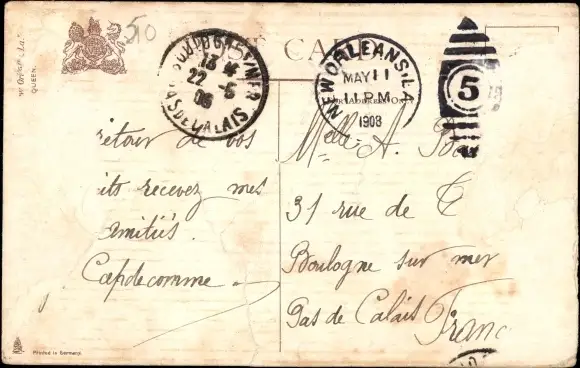 510
QUEEN.
CARD
BOULOGNE-S-MER
22 -5
08
PAS DE CALAIS
NEW ORLEANS, LA
MAY 11
11 PM
1908
5
retour de vos
recevez mes
amitiés.
Capdecomme
Melle A.
31 rue de
Boulogne sur mer
Pas de Calais
Franc
Printed in Germany